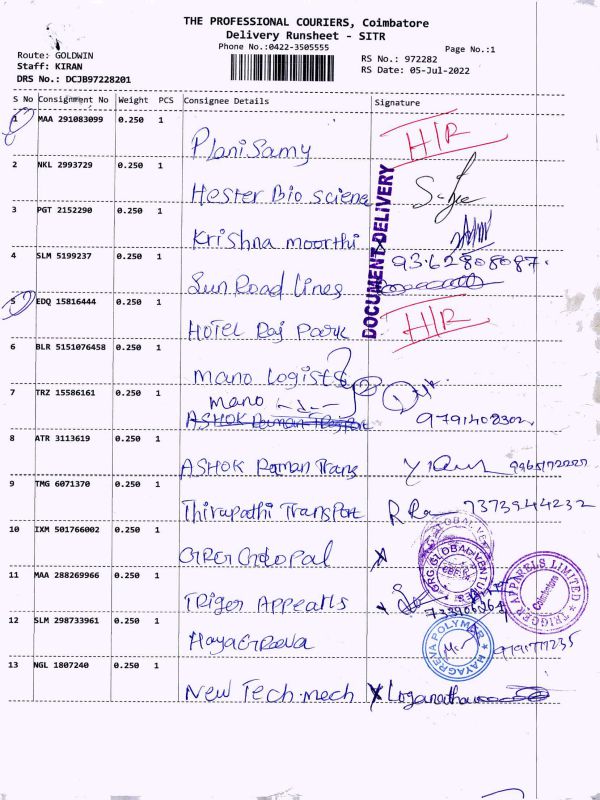 THE PROFESSIONAL COURIERS, Coimbatore
Delivery Runsheet - SITR
Phone No.:0422-3505555
Page No.:1
Route: GOLDWIN
Staff: KIRAN
DRS No.: DCJB97228201
RS No.: 972282
RS Date: 05-Jul-2022
S No Consignment No Weight PCS Consignee Details Signature
1 MAA 291083099 0.250 1
PlaniSamy H/R
2 NKL 2993729 0.250 1
Hester Bio science
3 PGT 2152290 0.250 1
Krishna moorthi
DOCUMENT DELIVERY
4 SLM 5199237 0.250 1
Sun Road Lines
5 EDQ 15816444 0.250 1
HOTEL Raj Park H/R
6 BLR 5151076458 0.250 1
mano Logists
7 TRZ 15586161 0.250 1
mano
9791408302
8 ATR 3113619 0.250 1
ASHOK Raman Trans
9 TMG 6071370 0.250 1
Thirupathi Transport 7373944232
10 IXM 501766002 0.250 1
GRG GLOBAL VENTURES
11 MAA 288269966 0.250 1
TRiger Appearls
TRIGGER APPARELS LIMITED
Coimbatore
12 SLM 298733961 0.250 1
HayaGreeva
HAYAGREEVA POLYMER
13 NGL 1807240 0.250 1
New Tech.mech Loganatha